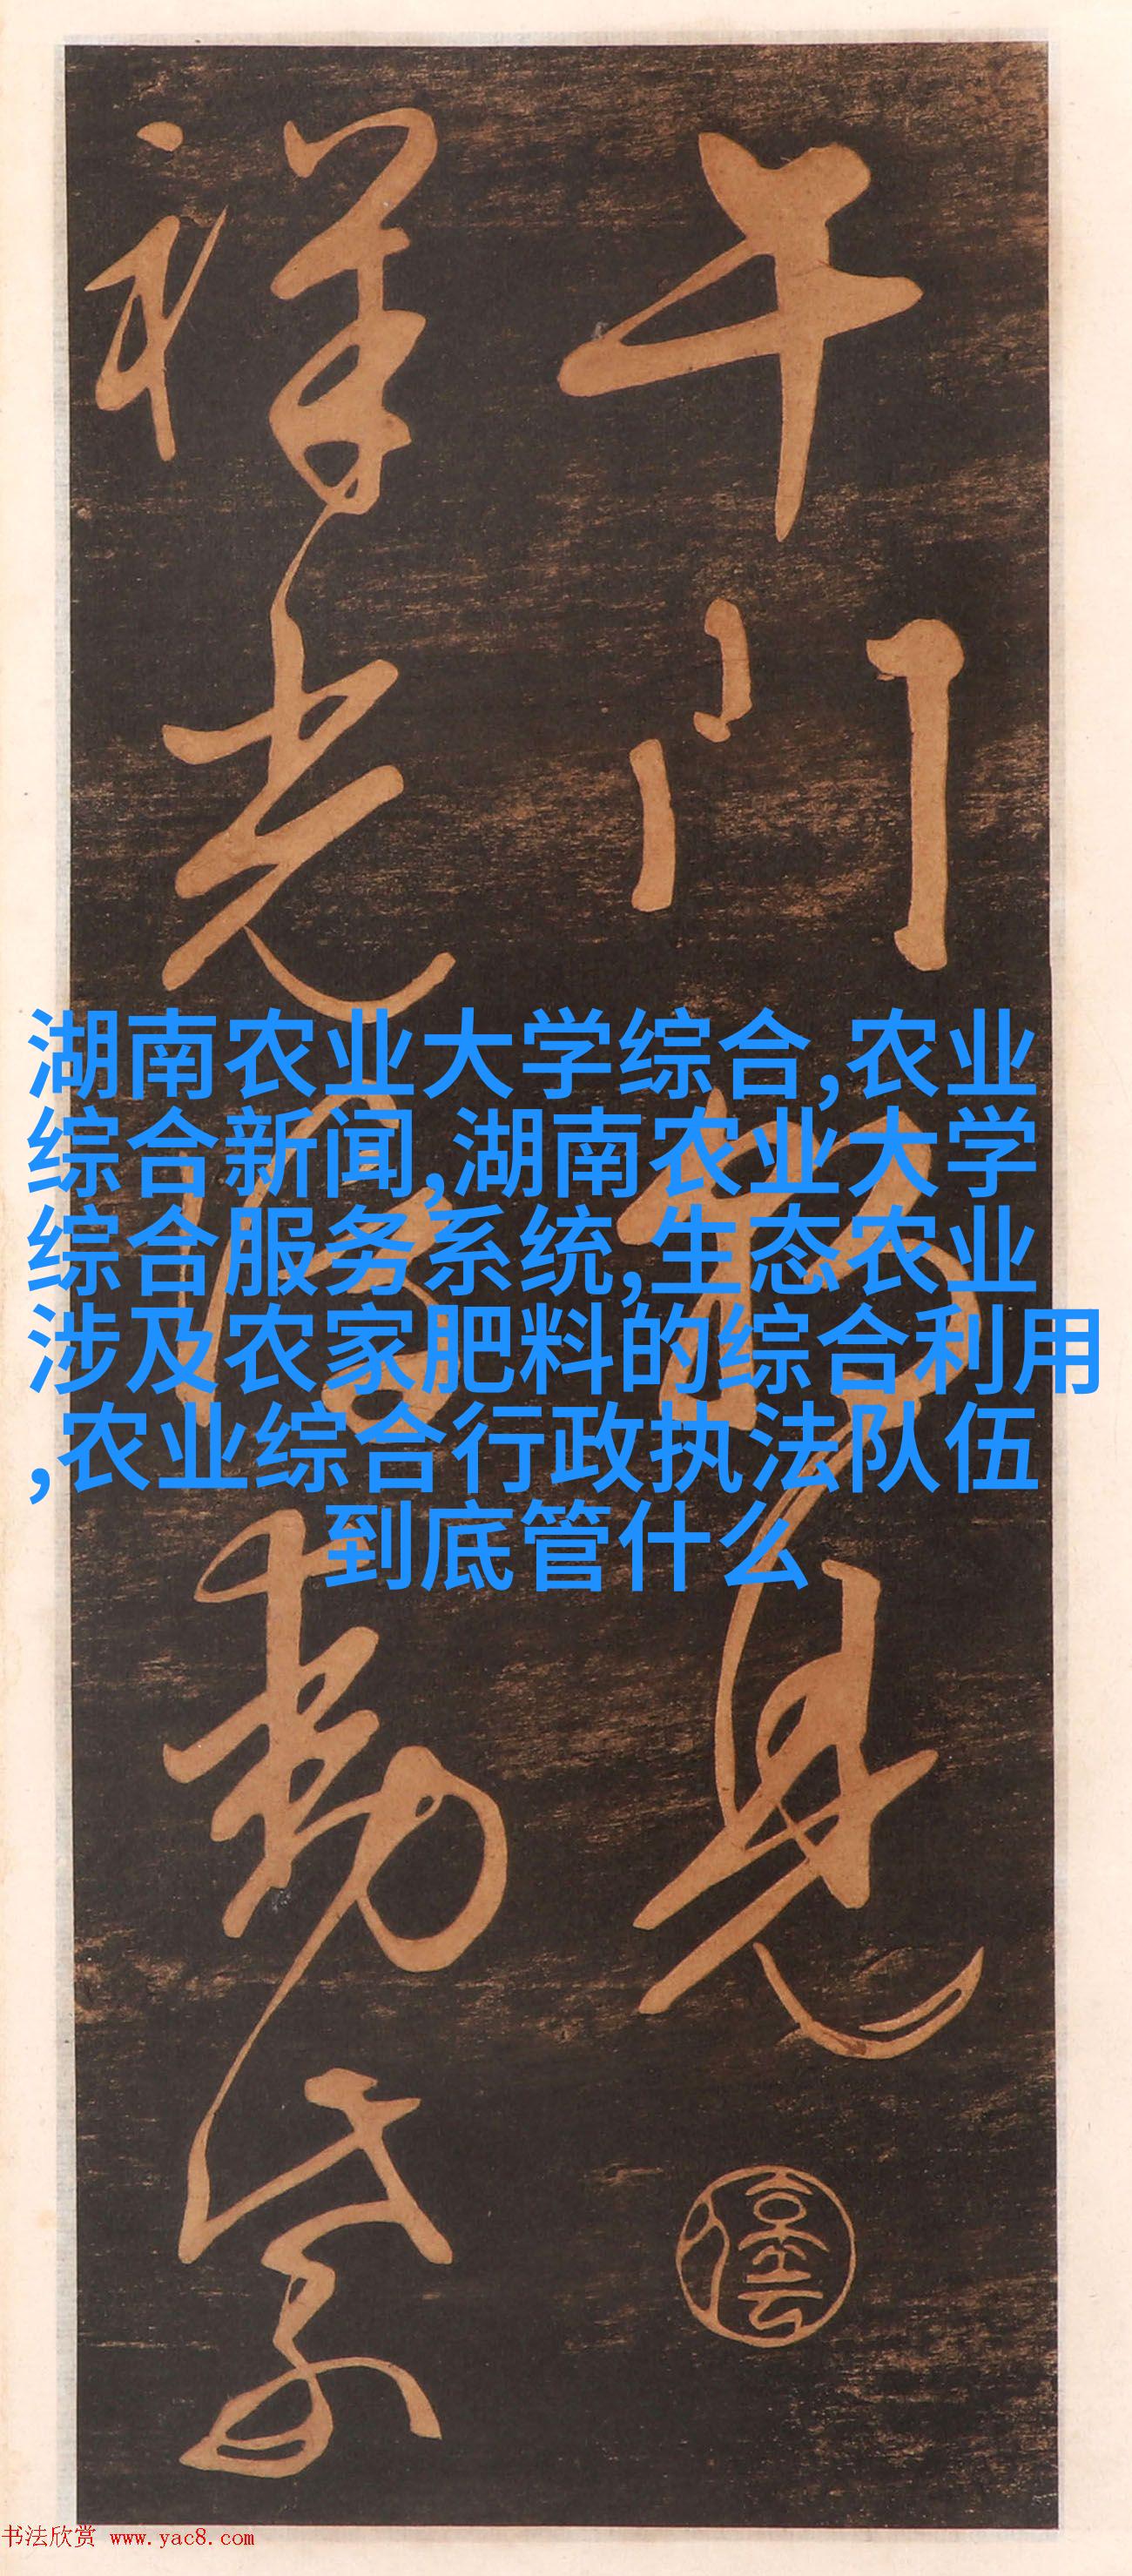 午门
见
祥光
动紫
湖南农业大学综合,农业
综合新闻,湖南农业大学
综合服务系统,生态农业
涉及农家肥料的综合利用
,农业综合行政执法队伍
到底管什么
书法欣赏 www.yac8.com